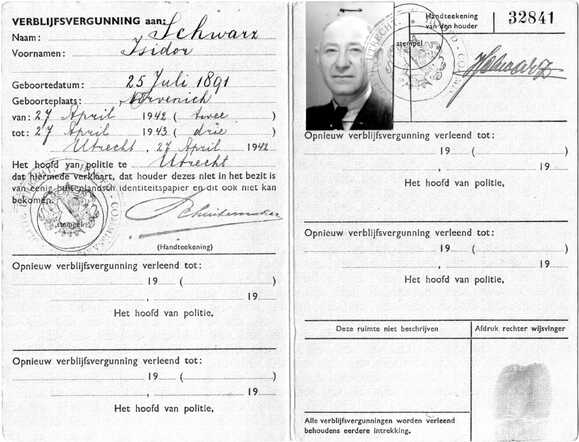 VERBLIJFSVERGUNNING aan:
Naam: Schwarz
Voornamen: Isidor
Geboortedatum: 25 Juli 1891
Geboorteplaats: Nörvenich
van: 27 April 1942 (twee)
tot: 27 April 1943 (drie)
Utrecht, 27 April 1942
Het hoofd van politie te Utrecht
dat hiermede verklaart, dat houder dezes niet in het bezit is
van eenig buitenlandsch identiteitspapier en dit ook niet kan
bekomen.
stempel
(Handteekening)
Opnieuw verblijfsvergunning verleend tot:
19 ( )
, 19
Het hoofd van politie,
Opnieuw verblijfsvergunning verleend tot:
19 ( )
, 19
Het hoofd van politie,
stempel
Handteekening
van den houder
32841
Schwarz
Opnieuw verblijfsvergunning verleend tot:
19 ( )
, 19
Het hoofd van politie,
Opnieuw verblijfsvergunning verleend tot:
19 ( )
, 19
Het hoofd van politie,
Deze ruimte niet beschrijven
Afdruk rechter wijsvinger
Alle verblijfsvergunningen worden verleend
behoudens eerdere intrekking.